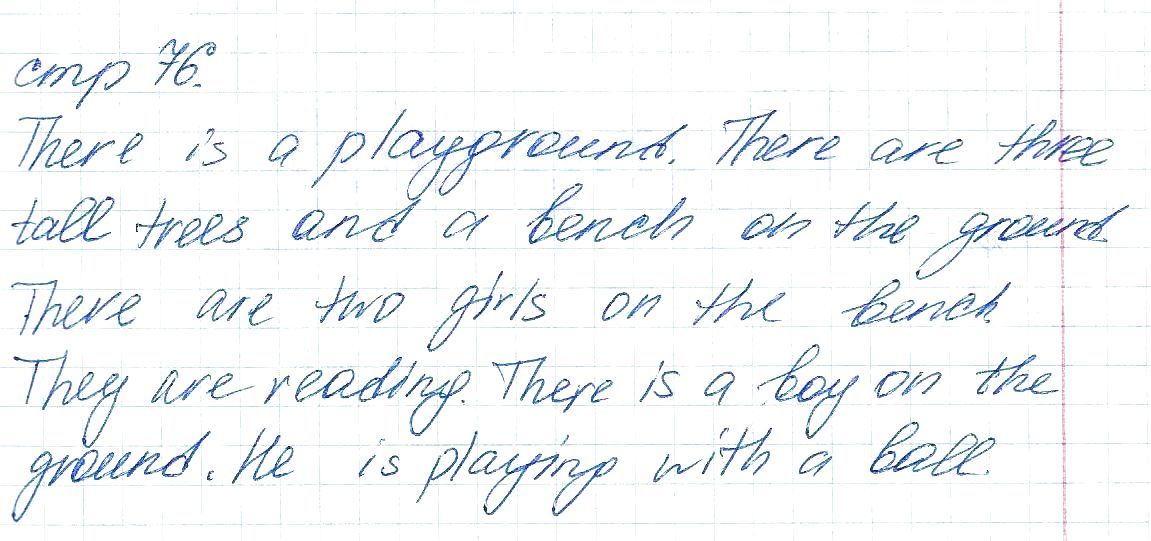 стр 76.
There is a playground. There are three
tall trees and a bench on the ground
There are two girls on the bench
They are reading. There is a boy on the
ground. He is playing with a ball.